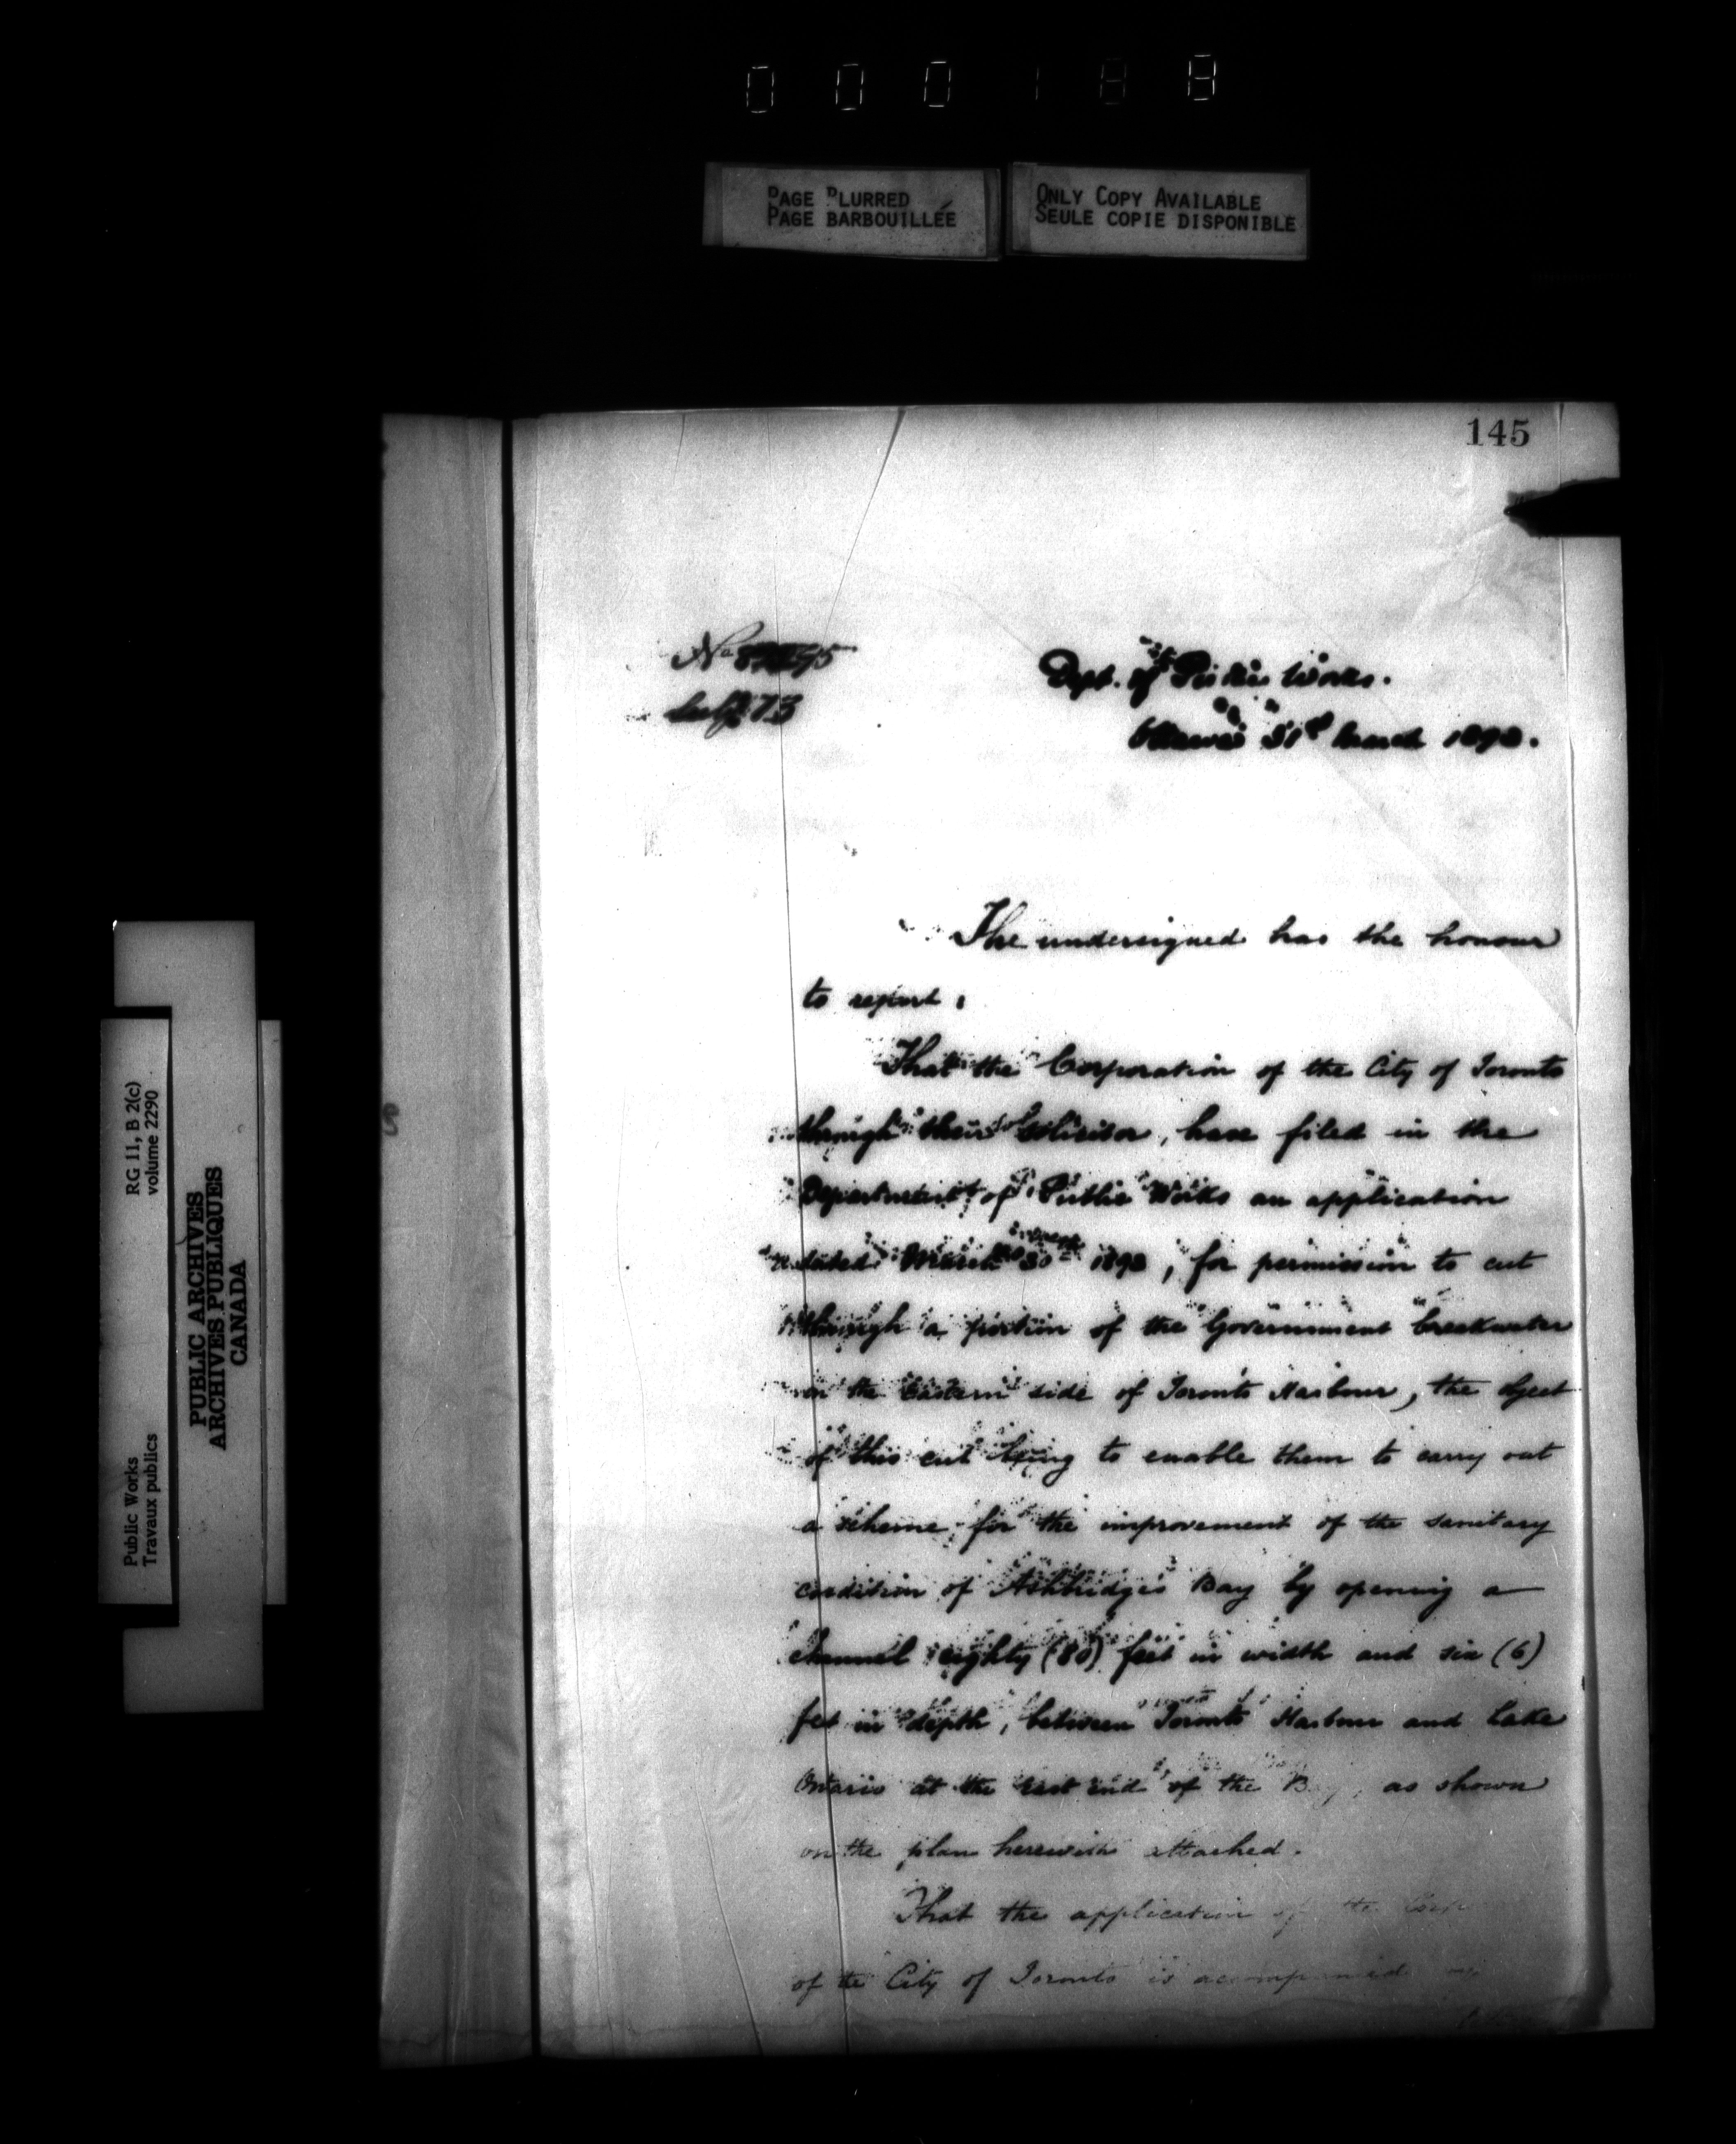 000188
PAGE BLURRED
PAGE BARBOUILLÉE
ONLY COPY AVAILABLE
SEULE COPIE DISPONIBLE
145
No
Subj 73
Dept. of Public Works.
Ottawa 31st March 1893.
The undersigned has the honour
to report,
That the Corporation of the City of Toronto
through their Solicitor, have filed in the
Department of Public Works an application
dated March 30th 1893, for permission to cut
through a portion of the Government breakwater
on the Eastern side of Toronto Harbour, the object
of this cut being to enable them to carry out
a scheme for the improvement of the sanitary
condition of Ashbridge's Bay by opening a
channel eighty (80) feet in width and six (6)
feet in depth, between Toronto Harbour and Lake
Ontario at the East end of the Bay, as shown
on the plan herewith attached.
That the application of the Corp
of the City of Toronto is accompanied
Public Works
Travaux publics
RG 11, B 2(c)
volume 2290
PUBLIC ARCHIVES
ARCHIVES PUBLIQUES
CANADA